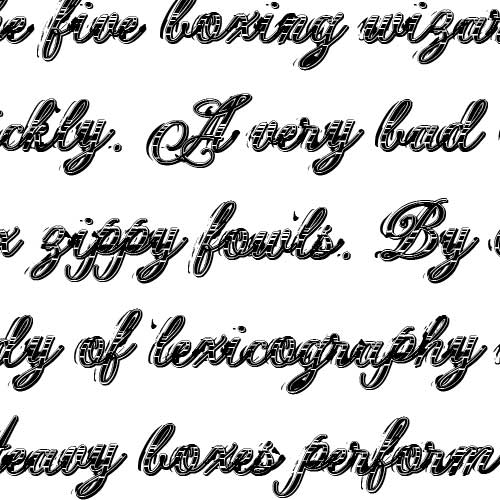 he five boxing wizar
ickly. A very bad
x zippy fowls. By
dy of lexicography
heavy boxes perform